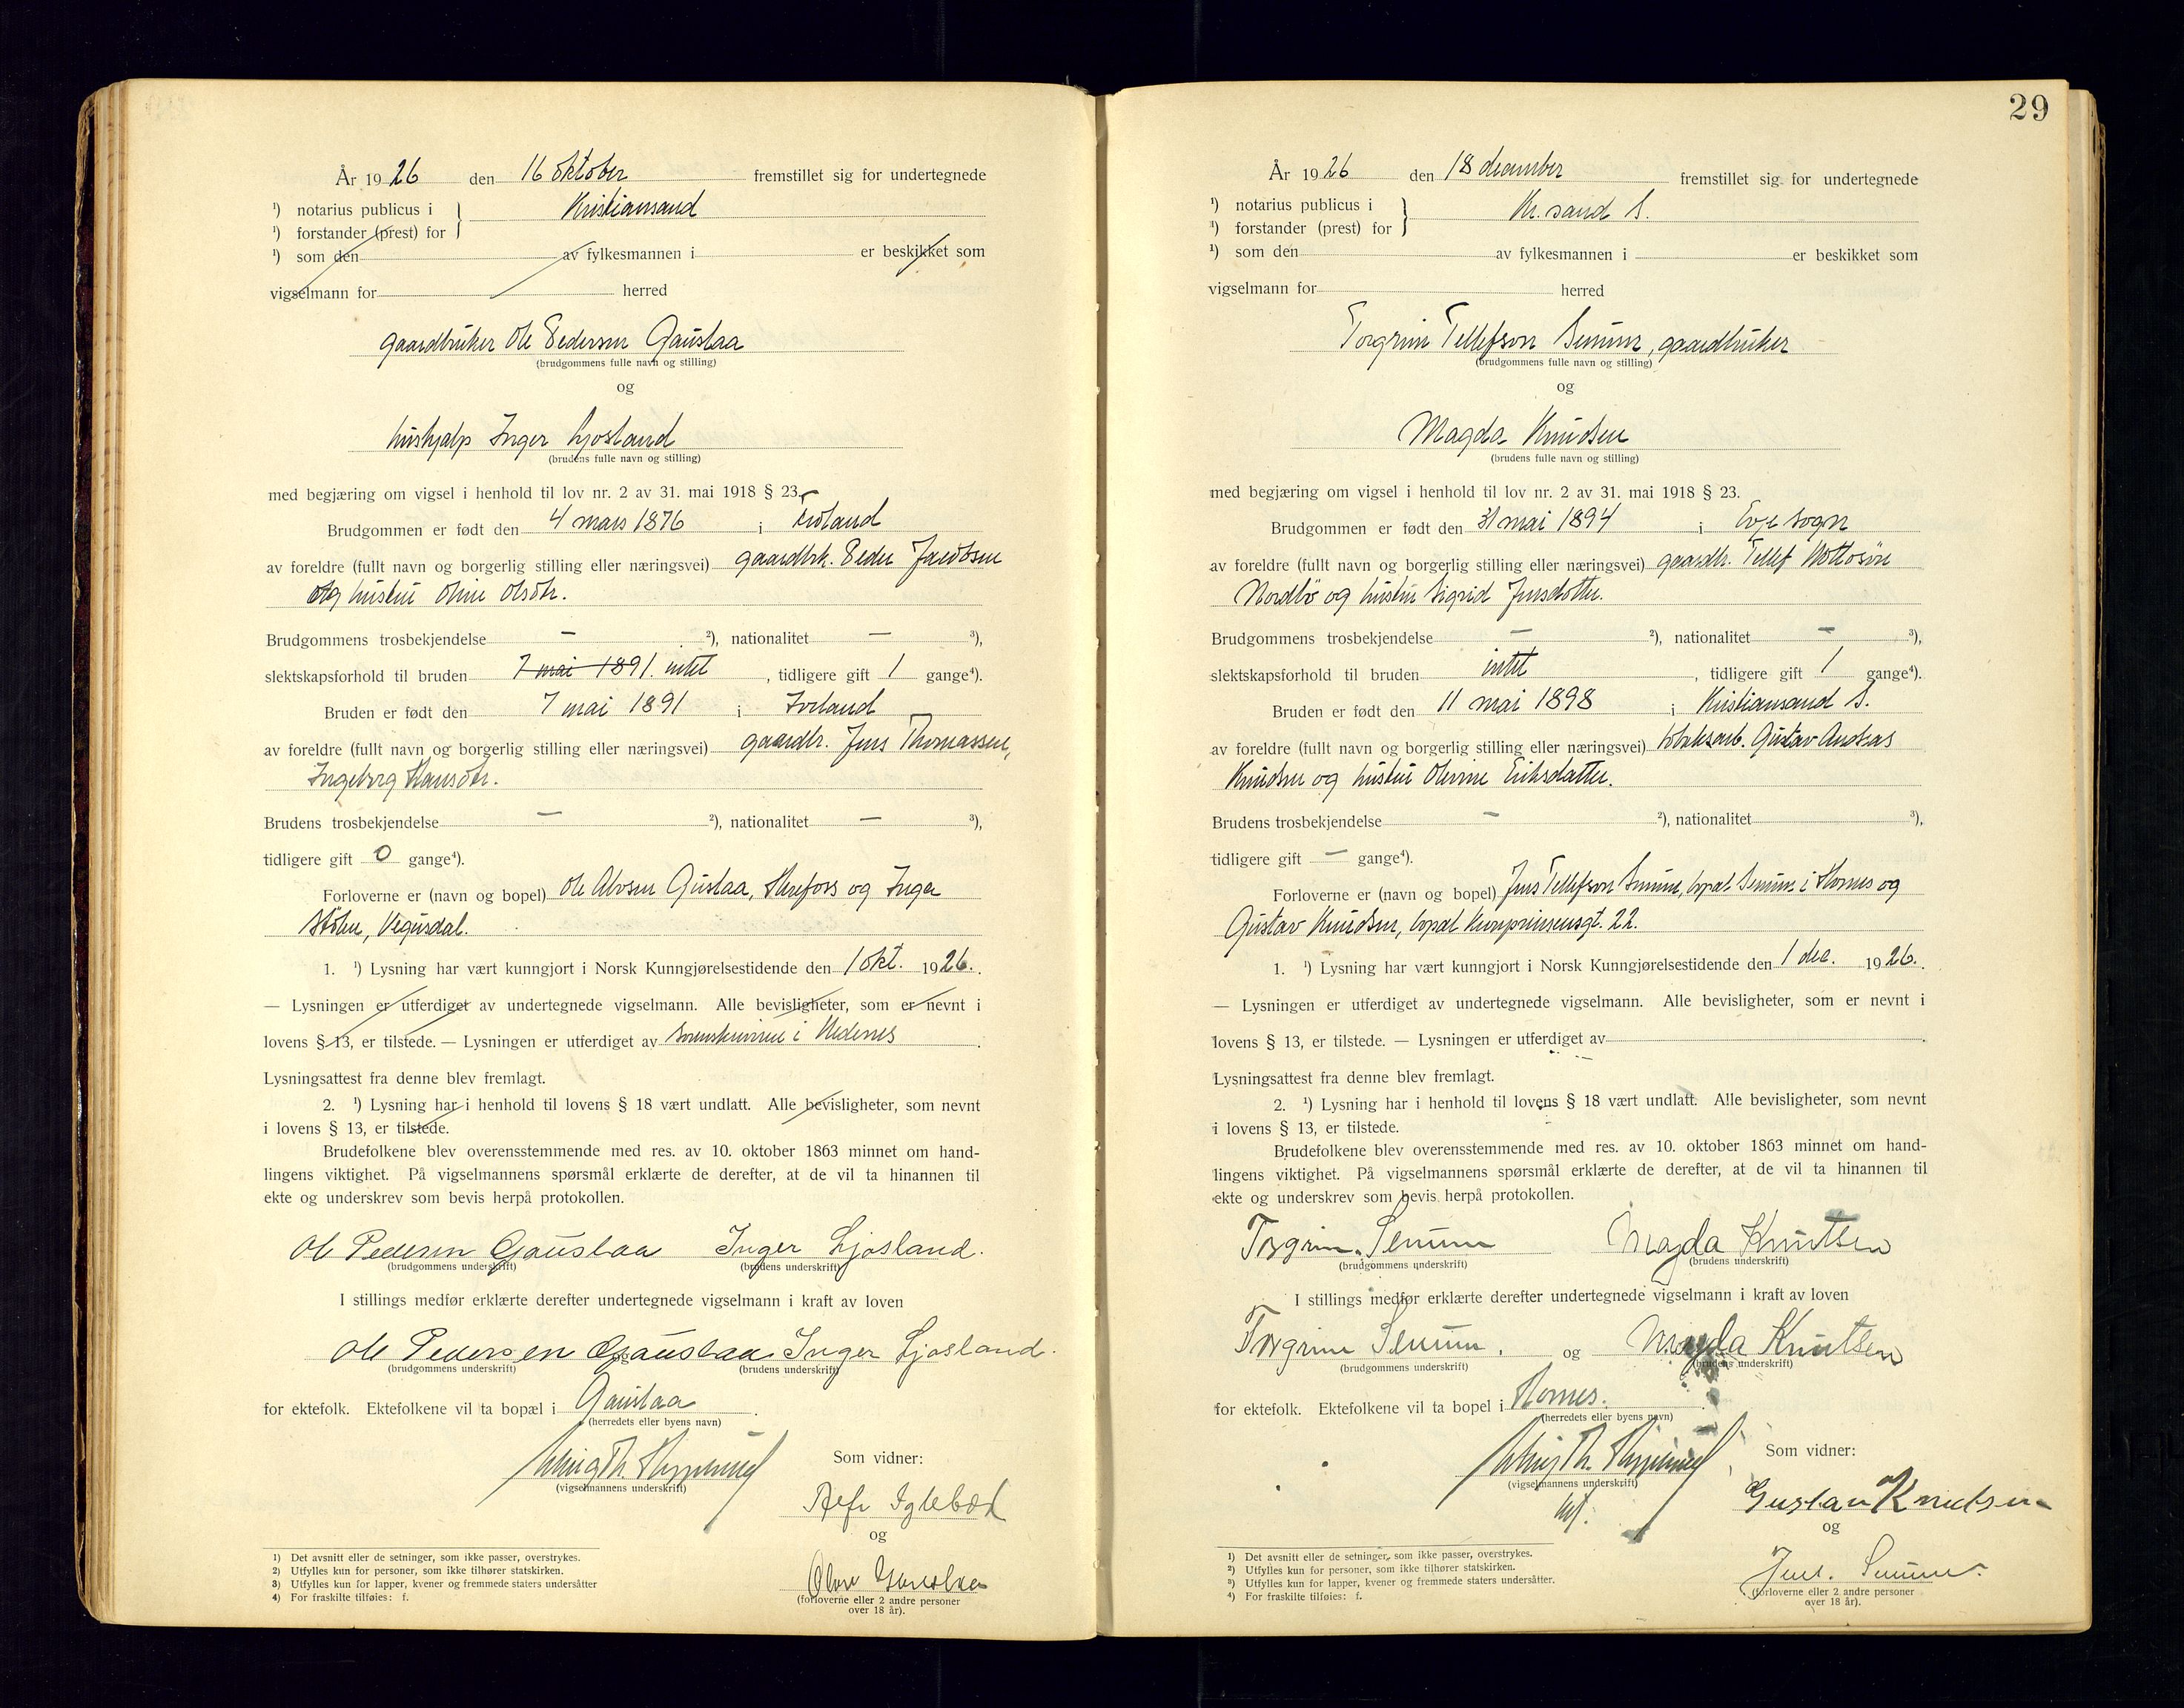 År 1926 den 16 oktober fremstillet sig for undertegnede
¹) notarius publicus i } Kristiansand
¹) forstander (prest) for
¹) som den av fylkesmannen i er beskikket som
vigselmann for herred
gaardbruker Ole Pedersen Gauslaa
(brudgommens fulle navn og stilling)
og
hushjalp Inger Ljosland
(brudens fulle navn og stilling)
med begjæring om vigsel i henhold til lov nr. 2 av 31. mai 1918 § 23.
Brudgommen er født den 4 mars 1876 i
av foreldre (fullt navn og borgerlig stilling eller næringsvei) gaardbrk. Peder Jacobsen
og hustru Oline Olsdtr.
Brudgommens trosbekjendelse — ²), nationalitet — ³),
slektskapsforhold til bruden 7 mai 1891. intet, tidligere gift 1 gange⁴).
Bruden er født den 7 mai 1891 i Iveland
av foreldre (fullt navn og borgerlig stilling eller næringsvei) gaardbr. Jens Thomassen,
Ingeborg Hansdtr.
Brudens trosbekjendelse — ²), nationalitet — ³),
tidligere gift 0 gange⁴).
Forloverne er (navn og bopel) Ole Gauslaa, Herefoss og Inger
Vegusdal.
1. ¹) Lysning har vært kunngjort i Norsk Kunngjørelsestidende den 1 okt. 1926.
— Lysningen er utferdiget av undertegnede vigselmann. Alle bevisligheter, som er nevnt i
lovens § 13, er tilstede. — Lysningen er utferdiget av sorenskriveren i Nedenes.
Lysningsattest fra denne blev fremlagt.
2. ¹) Lysning har i henhold til lovens § 18 vært undlatt. Alle bevisligheter, som nevnt
i lovens § 13, er tilstede.
Brudefolkene blev overensstemmende med res. av 10. oktober 1863 minnet om hand-
lingens viktighet. På vigselmannens spørsmål erklærte de derefter, at de vil ta hinannen til
ekte og underskrev som bevis herpå protokollen.
Ole Pedersen Gauslaa Inger Ljosland.
(brudgommens underskrift) (brudens underskrift)
I stillings medfør erklærte derefter undertegnede vigselmann i kraft av loven
Ole Pedersen Gauslaa og Inger Ljosland.
(brudgommens underskrift) (brudens underskrift)
for ektefolk. Ektefolkene vil ta bopæl i Gauslaa.
(herredets eller byens navn)
Som vidner:
(vigselmannens underskrift)
Iglebæk
og
Gauslaa
(forloverne eller 2 andre personer
over 18 år).
1) Det avsnitt eller de setninger, som ikke passer, overstrykes.
2) Utfylles kun for personer, som ikke tilhører statskirken.
3) Utfylles kun for lapper, kvener og fremmede staters undersåtter
4) For fraskilte tilføies: f.
29
År 1926 den 18 december fremstillet sig for undertegnede
¹) notarius publicus i } Kr.sand S.
¹) forstander (prest) for
¹) som den av fylkesmannen i er beskikket som
vigselmann for herred
Torgrim Tellefson Senum, gaardbruker
(brudgommens fulle navn og stilling)
og
Magda Knudsen
(brudens fulle navn og stilling)
med begjæring om vigsel i henhold til lov nr. 2 av 31. mai 1918 § 23.
Brudgommen er født den 31 mai 1894 i Evje sogn
av foreldre (fullt navn og borgerlig stilling eller næringsvei) gaardbr. Tellef
Nordbø og hustru Sigrid Jensdotter.
Brudgommens trosbekjendelse — ²), nationalitet — ³),
slektskapsforhold til bruden intet, tidligere gift 1 gange⁴).
Bruden er født den 11 mai 1898 i Kristiansand S.
av foreldre (fullt navn og borgerlig stilling eller næringsvei) Gustav Andreas
Knudsen og hustru Olevine Eriksdatter.
Brudens trosbekjendelse — ²), nationalitet ³),
tidligere gift — gange⁴).
Forloverne er (navn og bopel) Jens Tellefson Senum, bopæl Senum i Hornes og
Gustav Knudsen, bopæl Kronprinsensgt. 22.
1. ¹) Lysning har vært kunngjort i Norsk Kunngjørelsestidende den 1 dec. 1926.
— Lysningen er utferdiget av undertegnede vigselmann. Alle bevisligheter, som er nevnt i
lovens § 13, er tilstede. — Lysningen er utferdiget av
Lysningsattest fra denne blev fremlagt.
2. ¹) Lysning har i henhold til lovens § 18 vært undlatt. Alle bevisligheter, som nevnt
i lovens § 13, er tilstede.
Brudefolkene blev overensstemmende med res. av 10. oktober 1863 minnet om hand-
lingens viktighet. På vigselmannens spørsmål erklærte de derefter, at de vil ta hinannen til
ekte og underskrev som bevis herpå protokollen.
Torgrim Senum Magda Knutsen
(brudgommens underskrift) (brudens underskrift)
I stillings medfør erklærte derefter undertegnede vigselmann i kraft av loven
Torgrim Senum. og Magda Knutsen
(brudgommens underskrift) (brudens underskrift)
for ektefolk. Ektefolkene vil ta bopel i Hornes.
(herredets eller byens navn)
Som vidner:
(vigselmannens underskrift)
Gustav Knudsen
og
Jens. Senum.
(forloverne eller 2 andre personer
over 18 år).
1) Det avsnitt eller de setninger, som ikke passer, overstrykes.
2) Utfylles kun for personer, som ikke tilhører statskirken.
3) Utfylles kun for lapper, kvener og fremmede staters undersåtter.
4) For fraskilte tilføies: f.